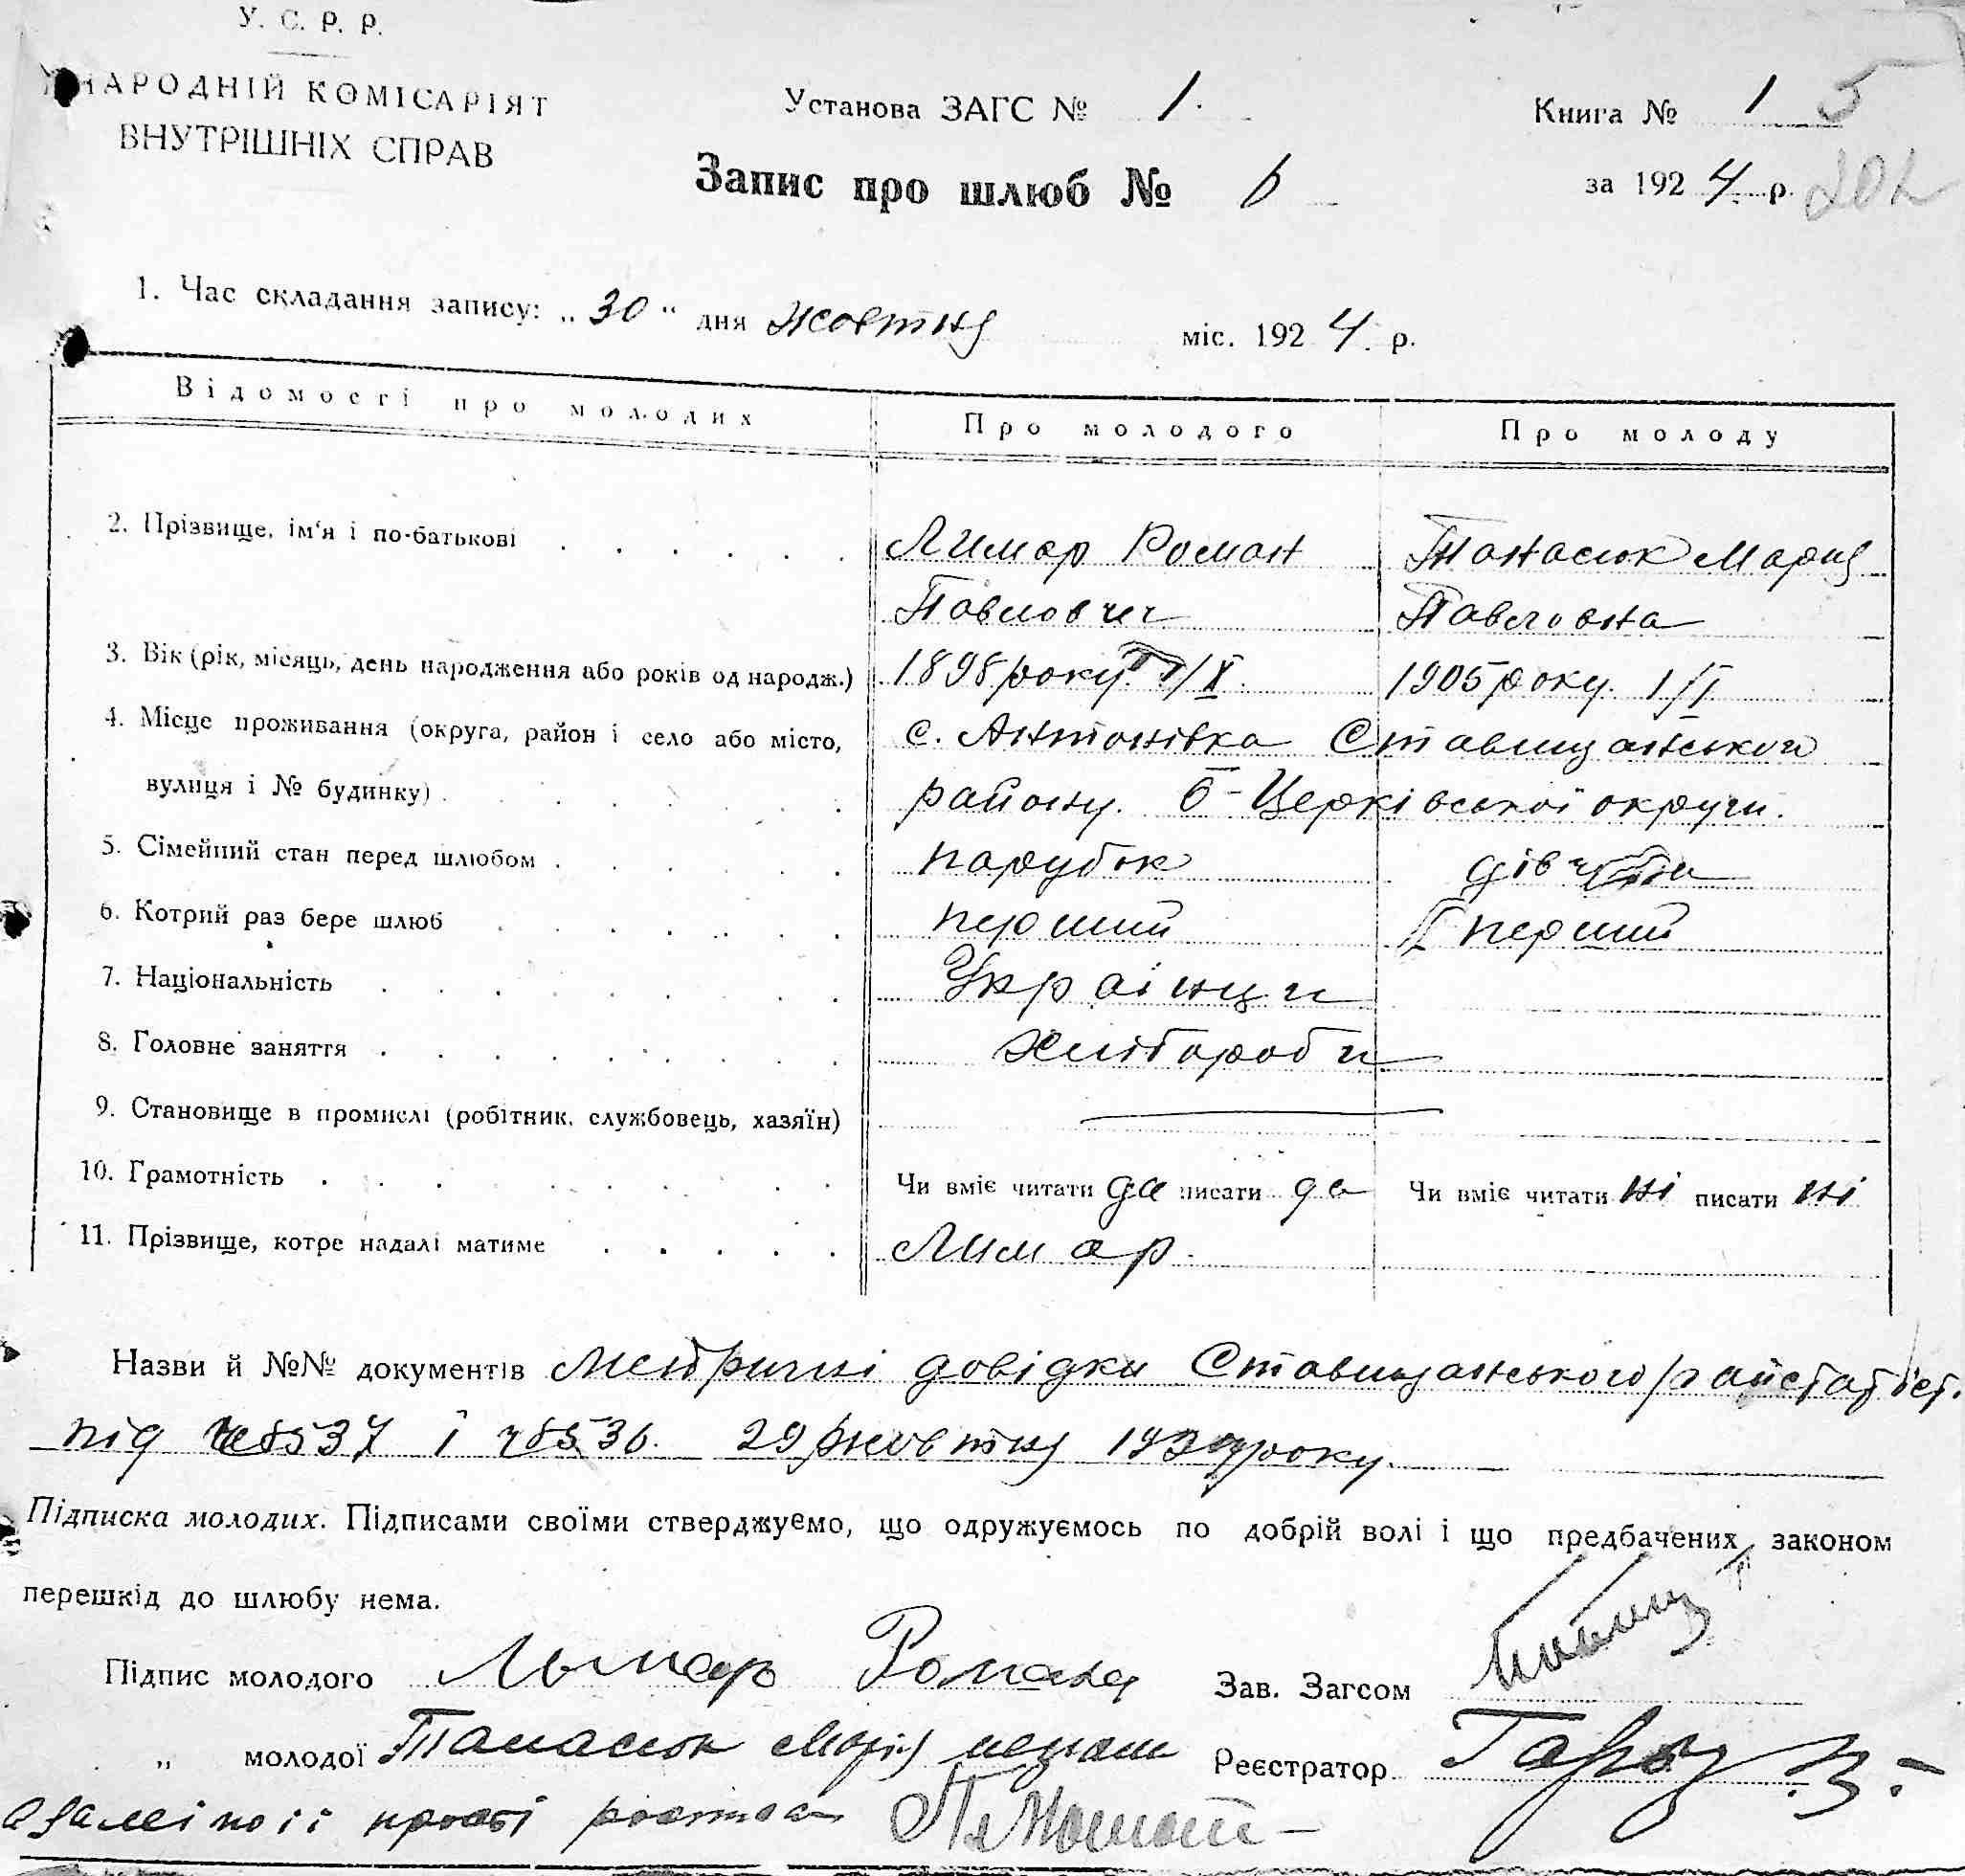 У. С. Р. Р.
НАРОДНІЙ КОМІСАРІЯТ
ВНУТРІШНІХ СПРАВ
Установа ЗАГС № 1.
Книга № 1 5
Запис про шлюб № 6
за 1924 р. 202
1. Час складання запису: „30“ дня жовтня міс. 1924. р.
Відомості про молодих Про молодого Про молоду
2. Прізвище, ім'я і по-батькові Лимар Роман Танасюк Мария
Павлович Павловна
3. Вік (рік, місяць, день народження або років од народж.) 1898 року 1/X 1905 року. 1/I
4. Місце проживання (округа, район і село або місто, с. Антонівка Ставищанського
вулиця і № будинку) району. Б-Церківської округи.
5. Сімейний стан перед шлюбом парубок дівчина
6. Котрий раз бере шлюб перший перший
7. Національність Українци
8. Головне заняття Хлібороби
9. Становище в промислі (робітник, службовець, хазяїн)
10. Грамотність Чи вміє читати да писати да Чи вміє читати ні писати ні
11. Прізвище, котре надалі матиме Лимар.
Назви й №№ документів Метричні довідки Ставищанського
під 8537 і 8536. 29 жовтня 1924 року.
Підписка молодих. Підписами своїми стверджуемо, що одружуємось по добрій волі і що предбачених законом
перешкід до шлюбу нема.
Підпис молодого Лымар Роман Зав. Загсом
„ молодої Танасюк Марія Реєстратор
а замі по її просбі